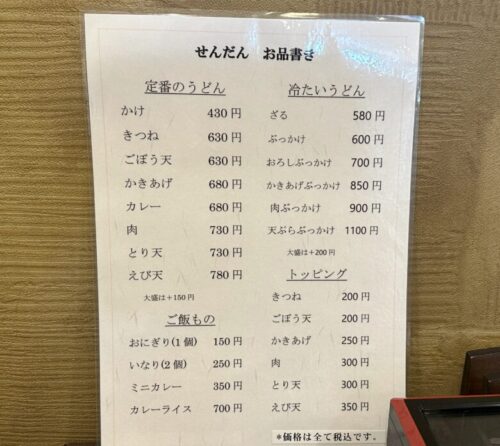 せんだん お品書き
定番のうどん
かけ 430 円
きつね 630 円
ごぼう天 630 円
かきあげ 680 円
カレー 680 円
肉 730 円
とり天 730 円
えび天 780 円
大盛は＋150 円
ご飯もの
おにぎり(1 個) 150 円
いなり(2 個) 250 円
ミニカレー 350 円
カレーライス 700 円
冷たいうどん
ざる 580 円
ぶっかけ 600 円
おろしぶっかけ 700 円
かきあげぶっかけ 850 円
肉ぶっかけ 900 円
天ぷらぶっかけ 1100 円
大盛は＋200 円
トッピング
きつね 200 円
ごぼう天 200 円
かきあげ 250 円
肉 300 円
とり天 300 円
えび天 350 円
*価格は全て税込です。